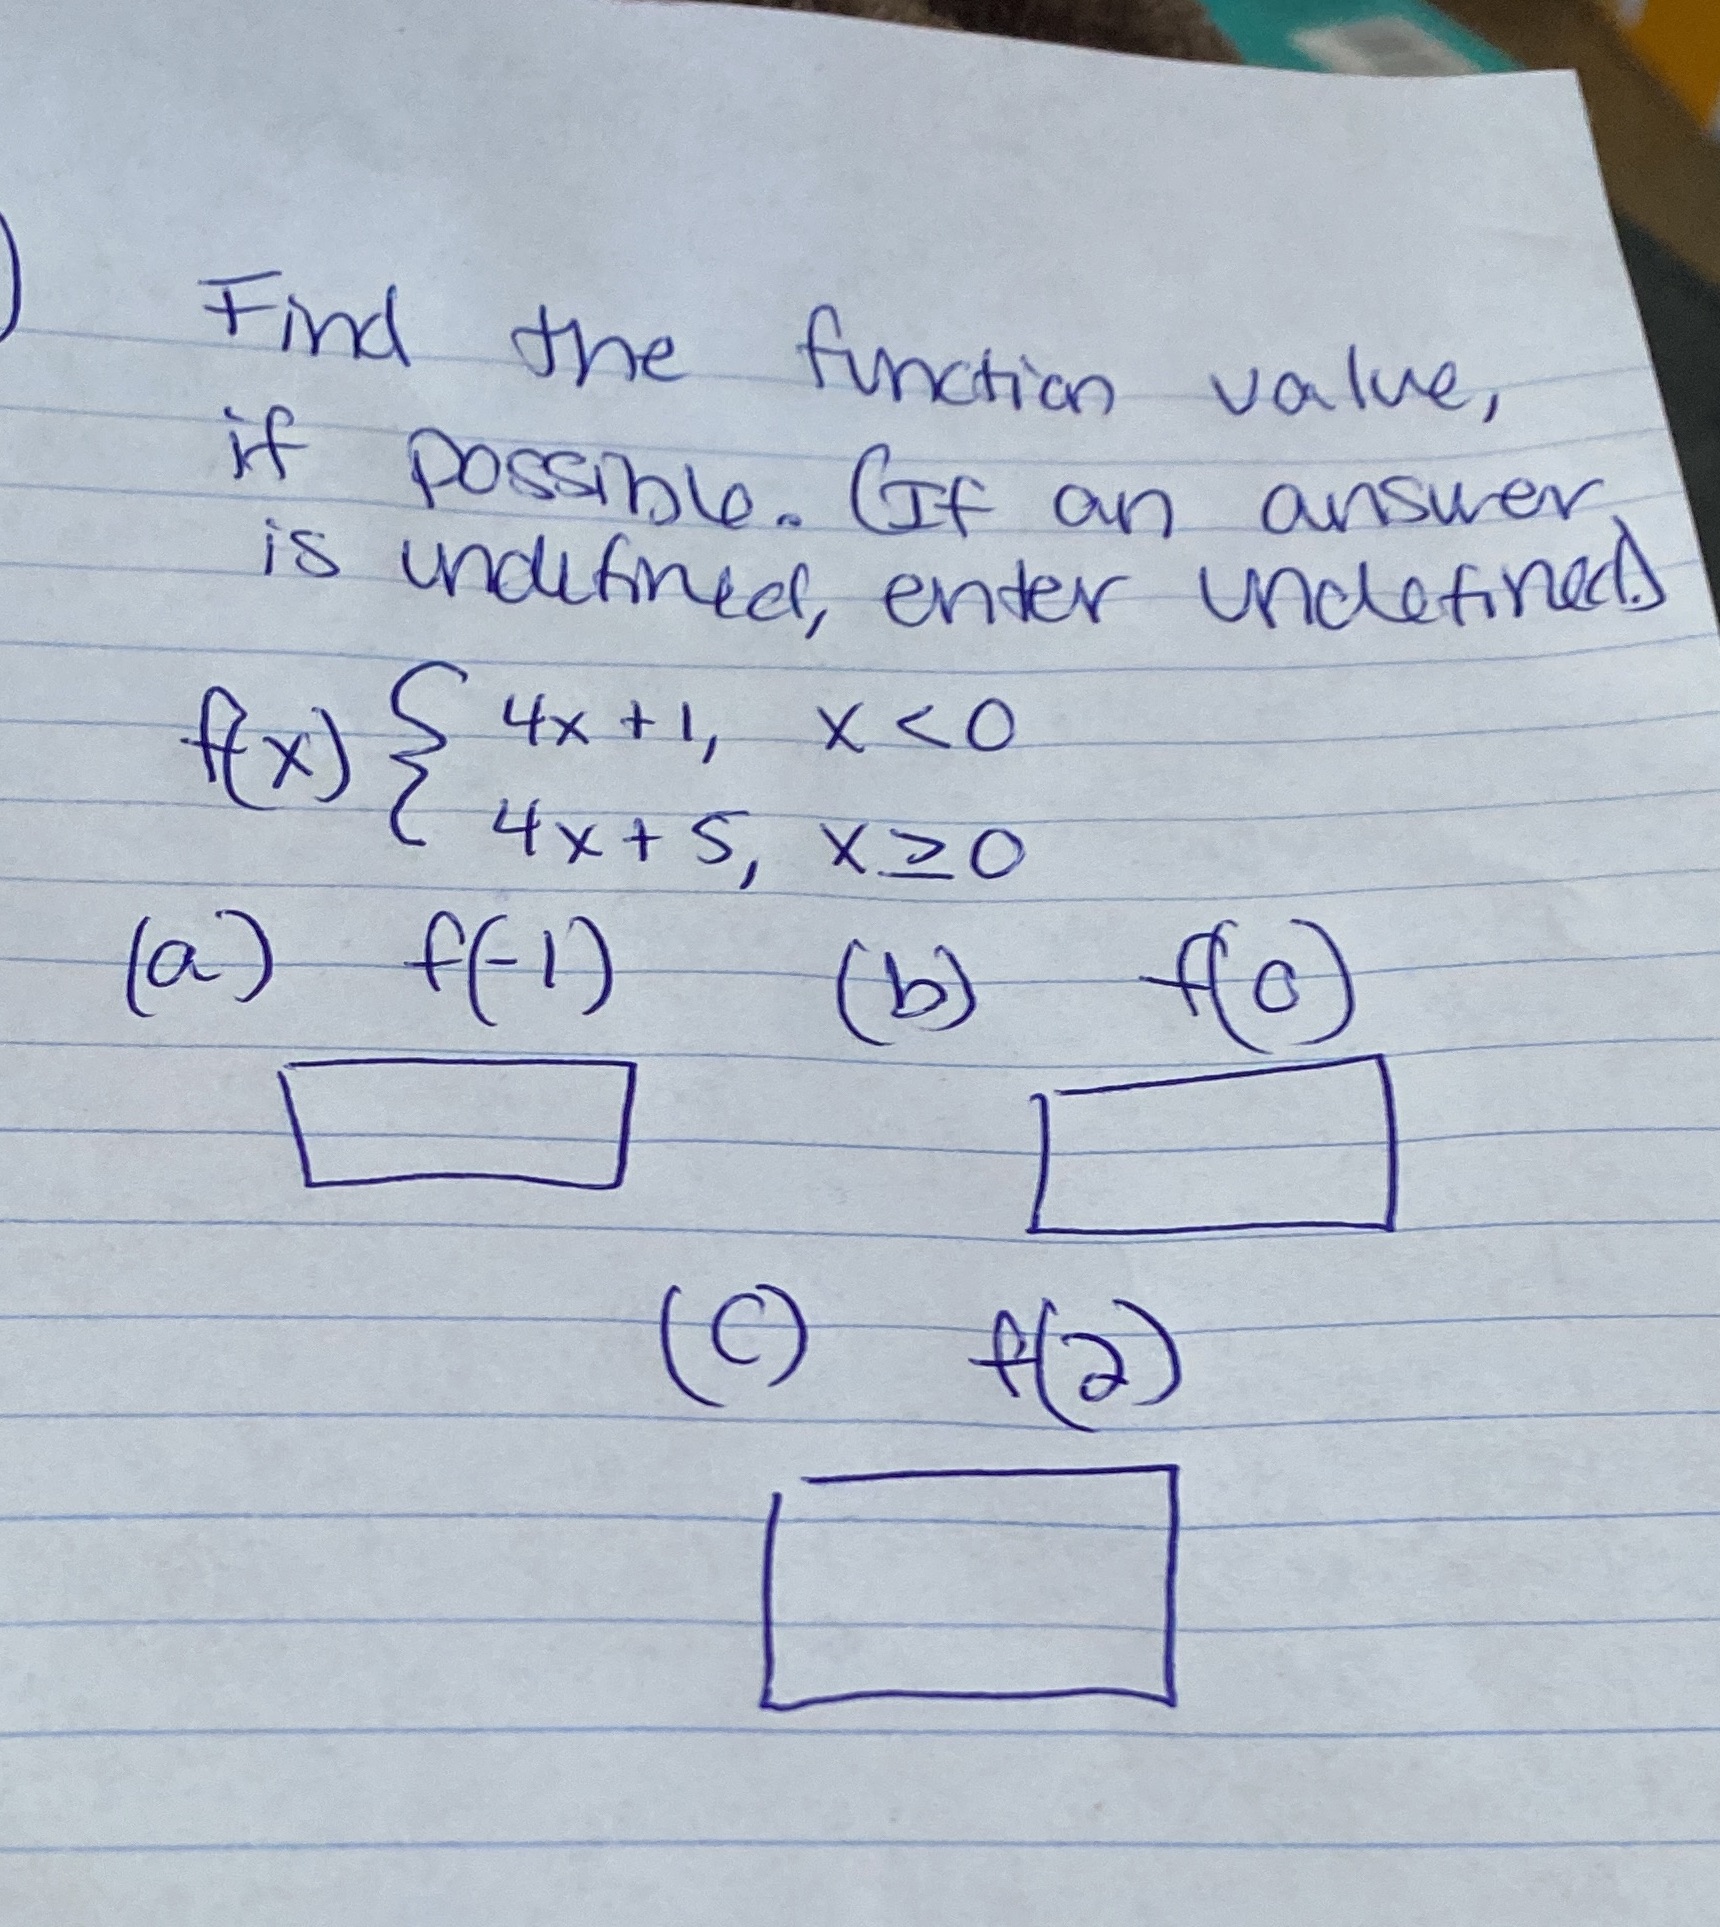 )
Find the function value,
if possible. (If an answer
is undefined, enter undefined.)
f(x) { 4x+1, x<0
4x+5, x≥0
(a) f(-1) (b) f(0)
(c) f(2)